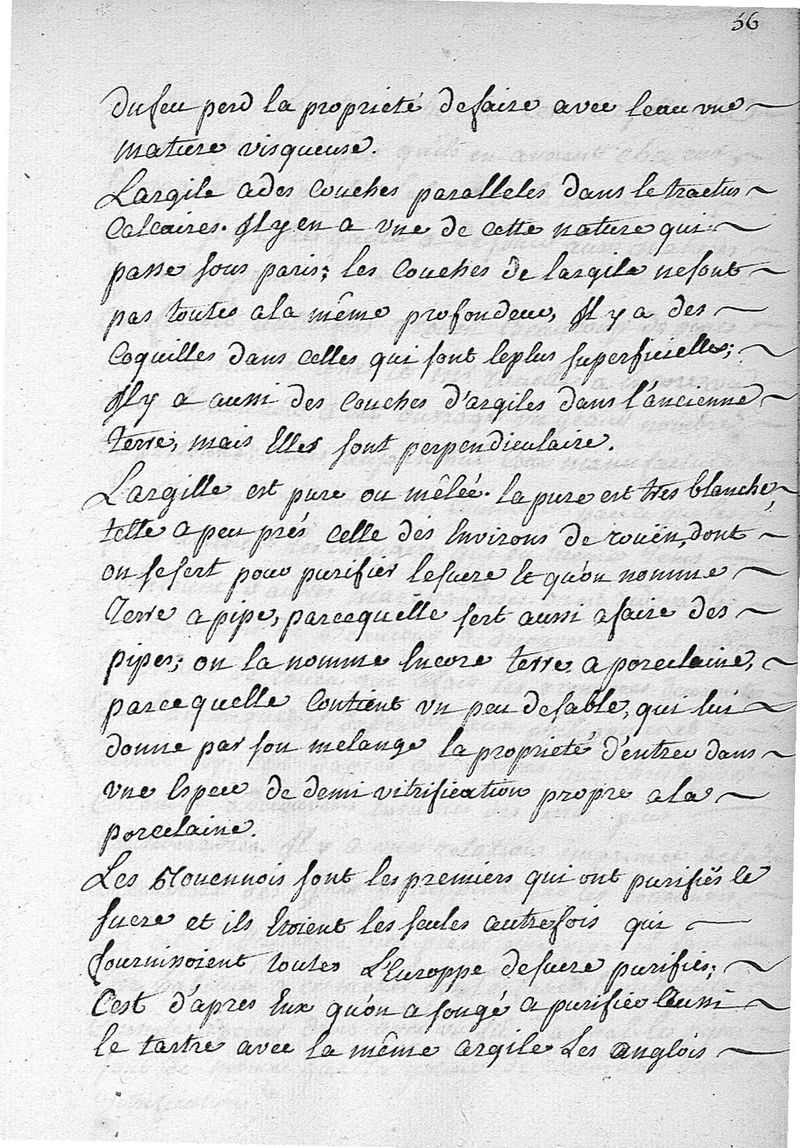 56
du feu perd la proprieté de faire avec leau vne
matiere visqueuse.
Largile a des Couches paralleles dans le tractus
Calcaires. Il y en a vne de cette nature qui
passe sous paris; les Couches de largile ne sont
pas toutes a la même profondeur, Il y a des
Coquilles dans celles qui sont le plus superficielles;
Il y a aussi des Couches d'argiles dans l'áncienne
Terre, mais Elles sont perpendiculaire.
L'argille est pure ou mêlée. la pure est très blanche,
telle a peu prés celle des Environs de rouën, dont
on se sert pour purifier le sucre et qu'on nomme
Terre a pipe, parcequelle sert aussi a faire des
pipes; on la nomme Encore terre a porcelaine,
parcequelle Contient vn peu de sable, qui lui
donne par son melange la proprieté d'entrer dans
vne Espece de demi vitrification propre a la
porcelaine.
Les Rouennois sont les premiers qui ont purifiés le
sucre et ils Etoient les seules autrefois qui
fournissoient toutes L'Europpe de sucre purifiés;
C'est d'apres Eux qu'on a songé a purifier aussi
le tartre avec la même argile Les anglois